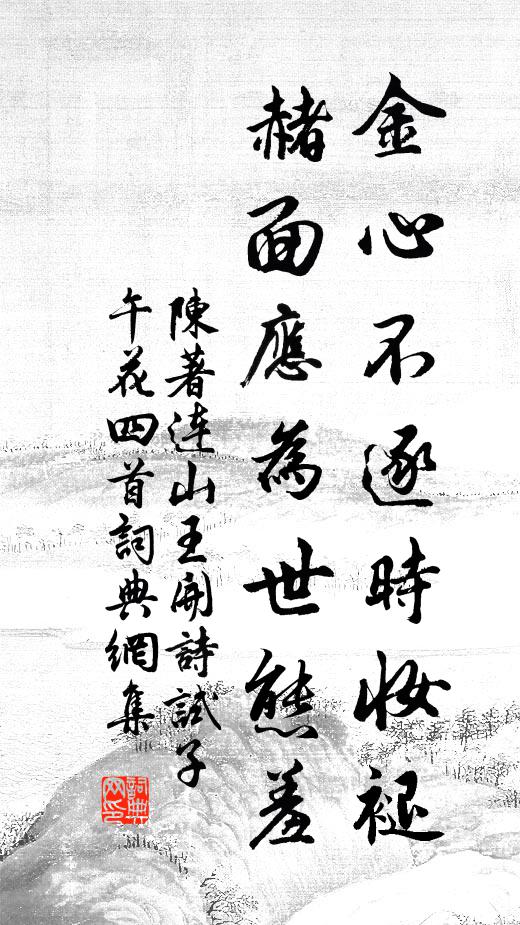 金心不逐時妝褪
赭面應為世態羞
陳著連山王開詩試子
午花四首詞典網集
詞典
网印